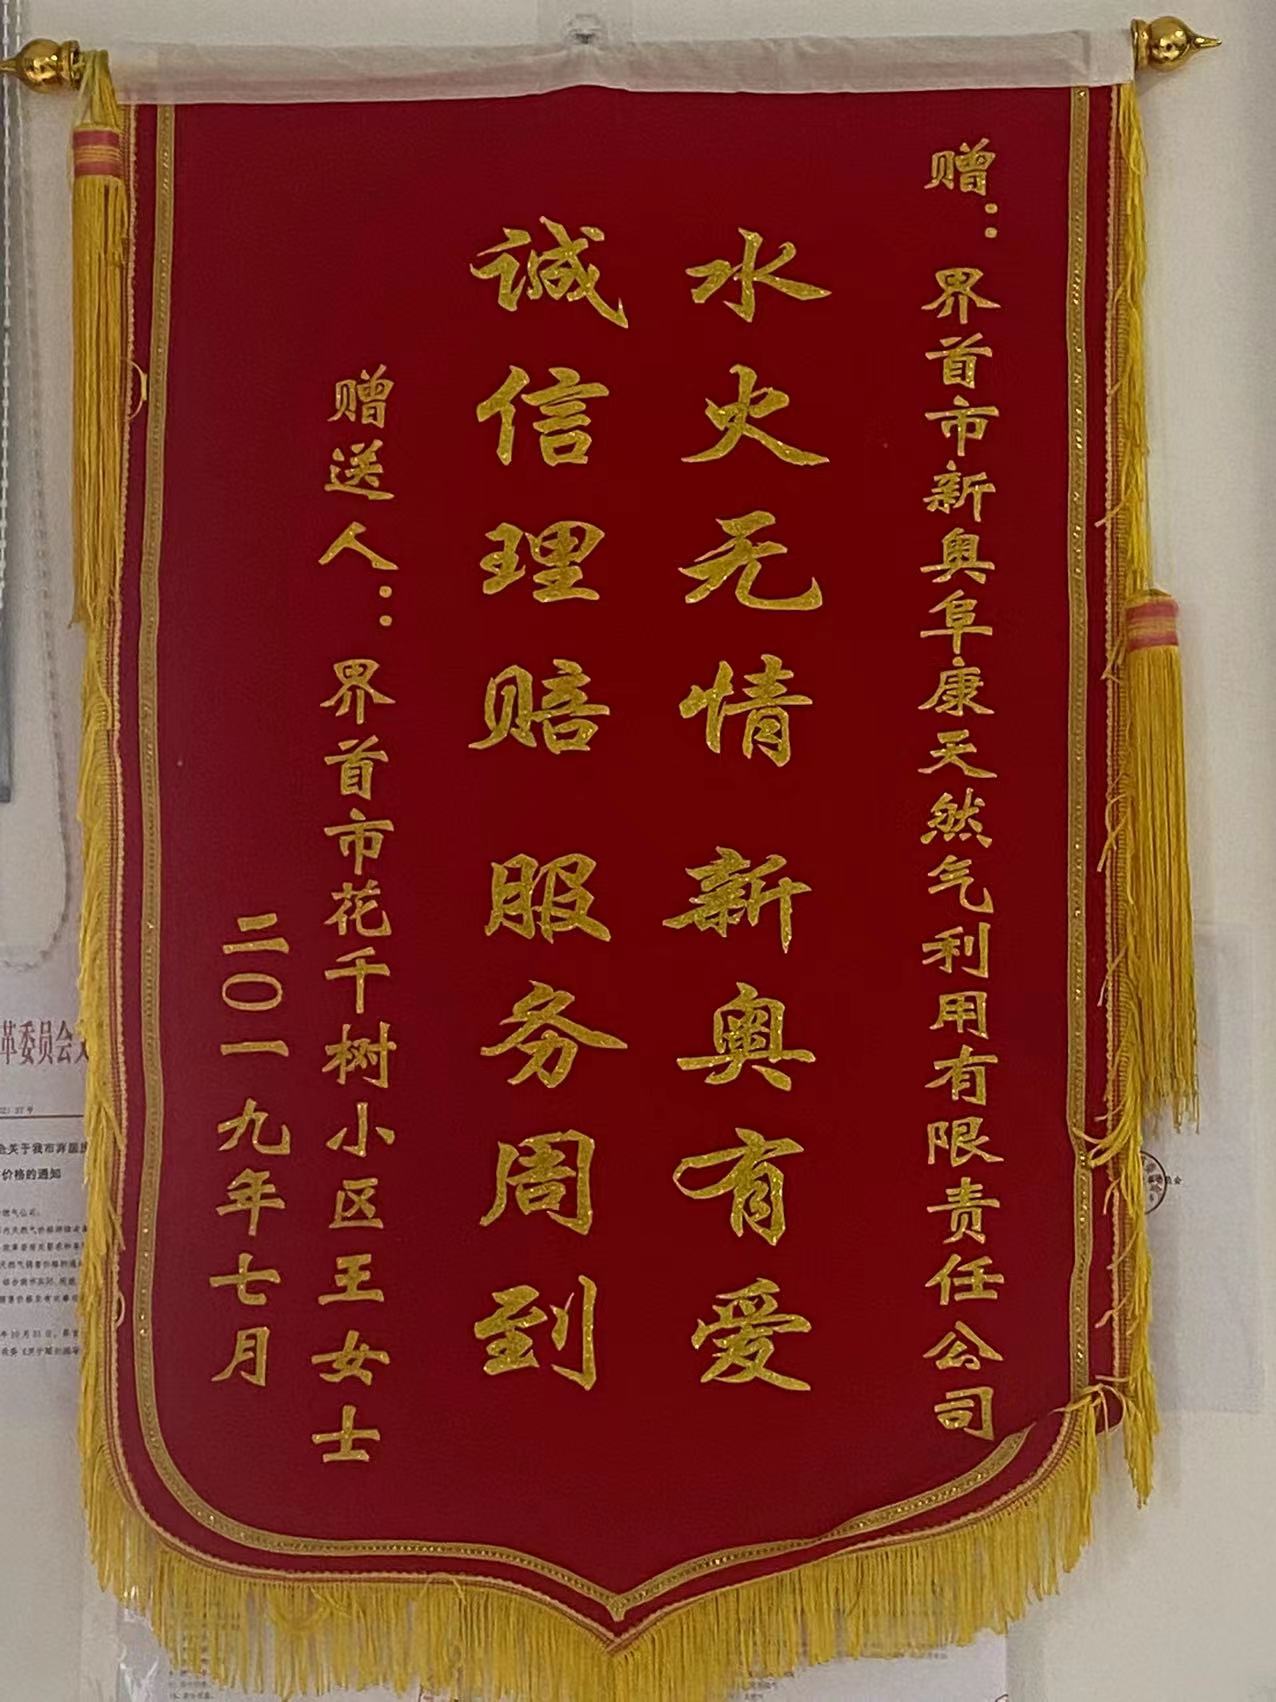 赠：界首市新奥阜康天然气利用有限责任公司
水火无情 新奥有爱
诚信理赔 服务周到
赠送人：界首市花千树小区王女士
二〇一九年七月
革委员会
价格的通知